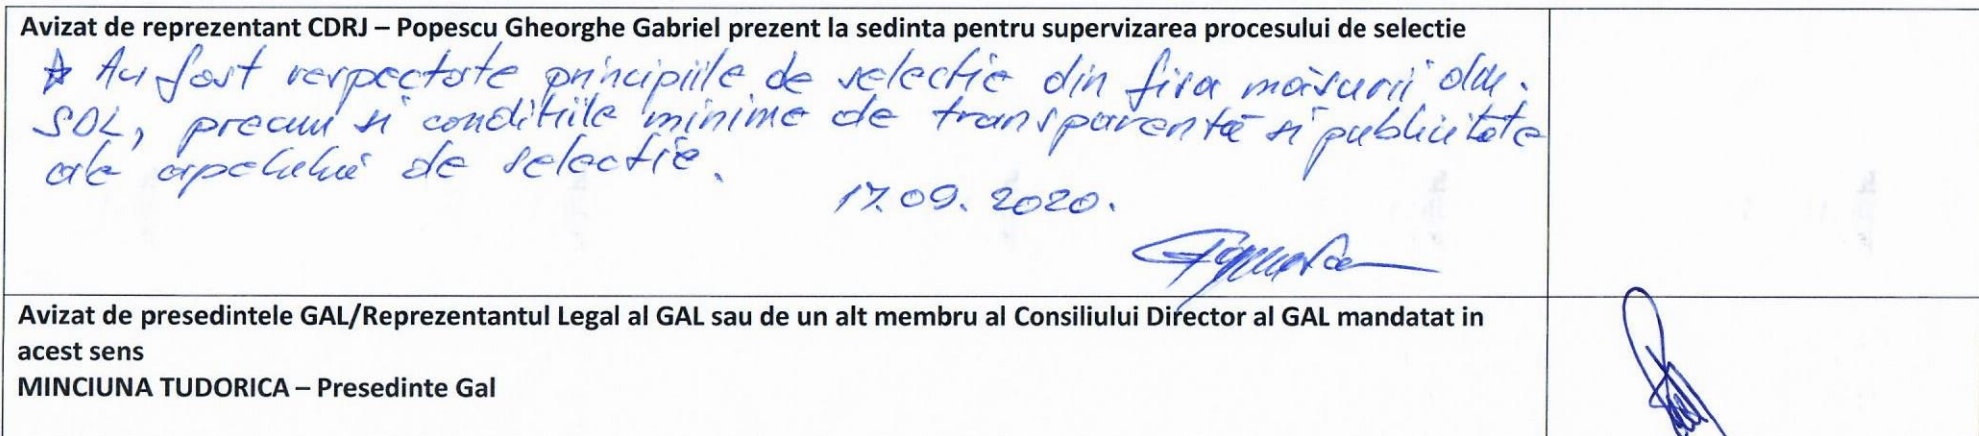 Avizat de reprezentant CDRJ – Popescu Gheorghe Gabriel prezent la sedinta pentru supervizarea procesului de selectie
Au fost respectate principiile de selectie din fisa măsurii din
SDL, precum si conditiile minime de transparentă si publicitate
ale apelului de selectie.
17.09.2020.
Avizat de presedintele GAL/Reprezentantul Legal al GAL sau de un alt membru al Consiliului Director al GAL mandatat in
acest sens
MINCIUNA TUDORICA – Presedinte Gal